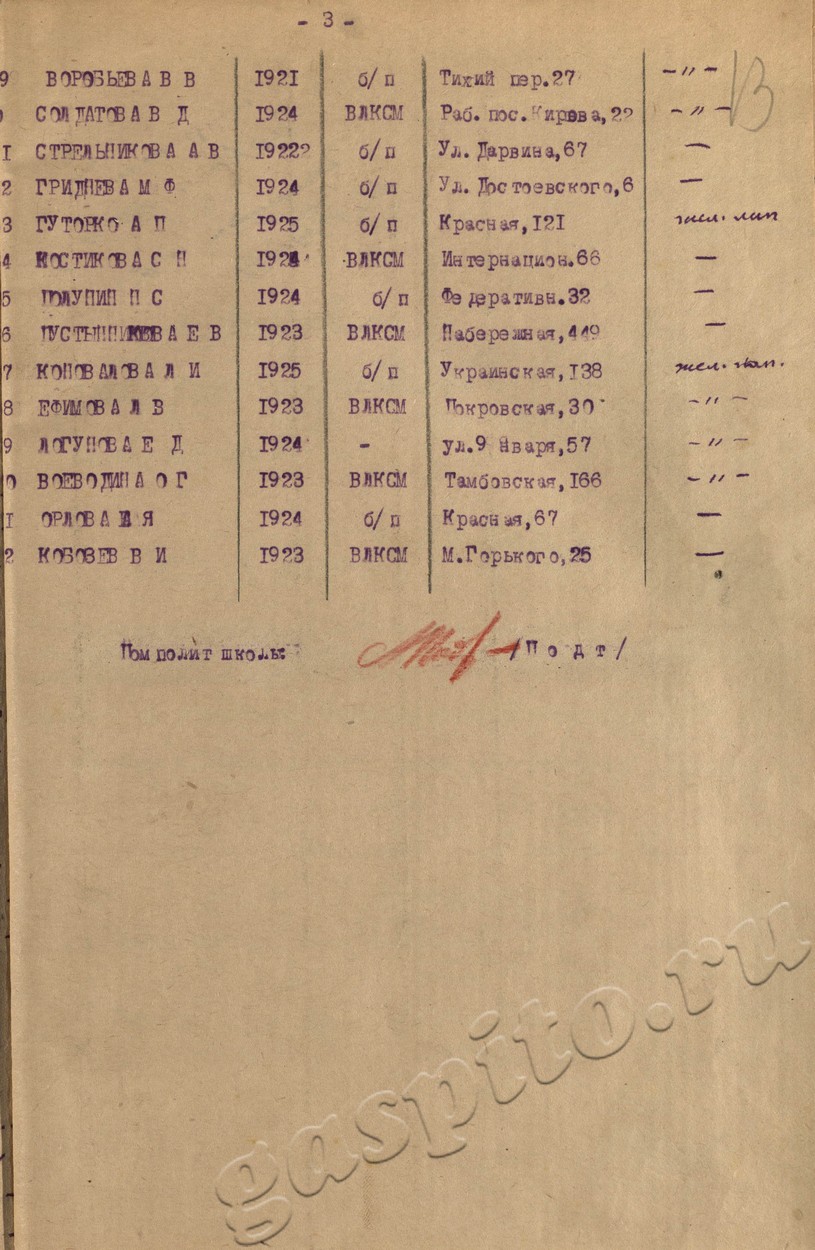 - 3 -
9 ВОРОБЬЕВА В В 1921 б/п Тихий пер.27 -"-
СОЛДАТОВА В Д 1924 ВЛКСМ Раб. пос. Кирова,22 -"- 13
1 СТРЕЛЬНИКОВА А В 1922? б/п Ул. Дарвина,67 —
2 ГРИДНЕВА М Ф 1924 б/п Ул. Достоевского,6 —
3 ГУТОРКО А П 1925 б/п Красная,121
4 КОСТИКОВА С Н 1924 ВЛКСМ Интернацион.66 —
5 ПОЛУНИН П С 1924 б/п Федеративн.32 —
6 Е В 1923 ВЛКСМ Набережная,449 —
7 КОНОВАЛОВА Л И 1925 б/п Украинская,138
8 ЕФИМОВА Л В 1923 ВЛКСМ Покровская,30 -"-
9 ЛОГУНОВА Е Д 1924 - ул.9 Января,57 -"-
0 ВОЕВОДИНА О Г 1923 ВЛКСМ Тамбовская,166 -"-
1 ОРЛОВА Я 1924 б/п Красная,67 —
2 КОБОЗЕВ В И 1923 ВЛКСМ М.Горького,25 —
Пом полит школы /П о д т/
gaspito.ru